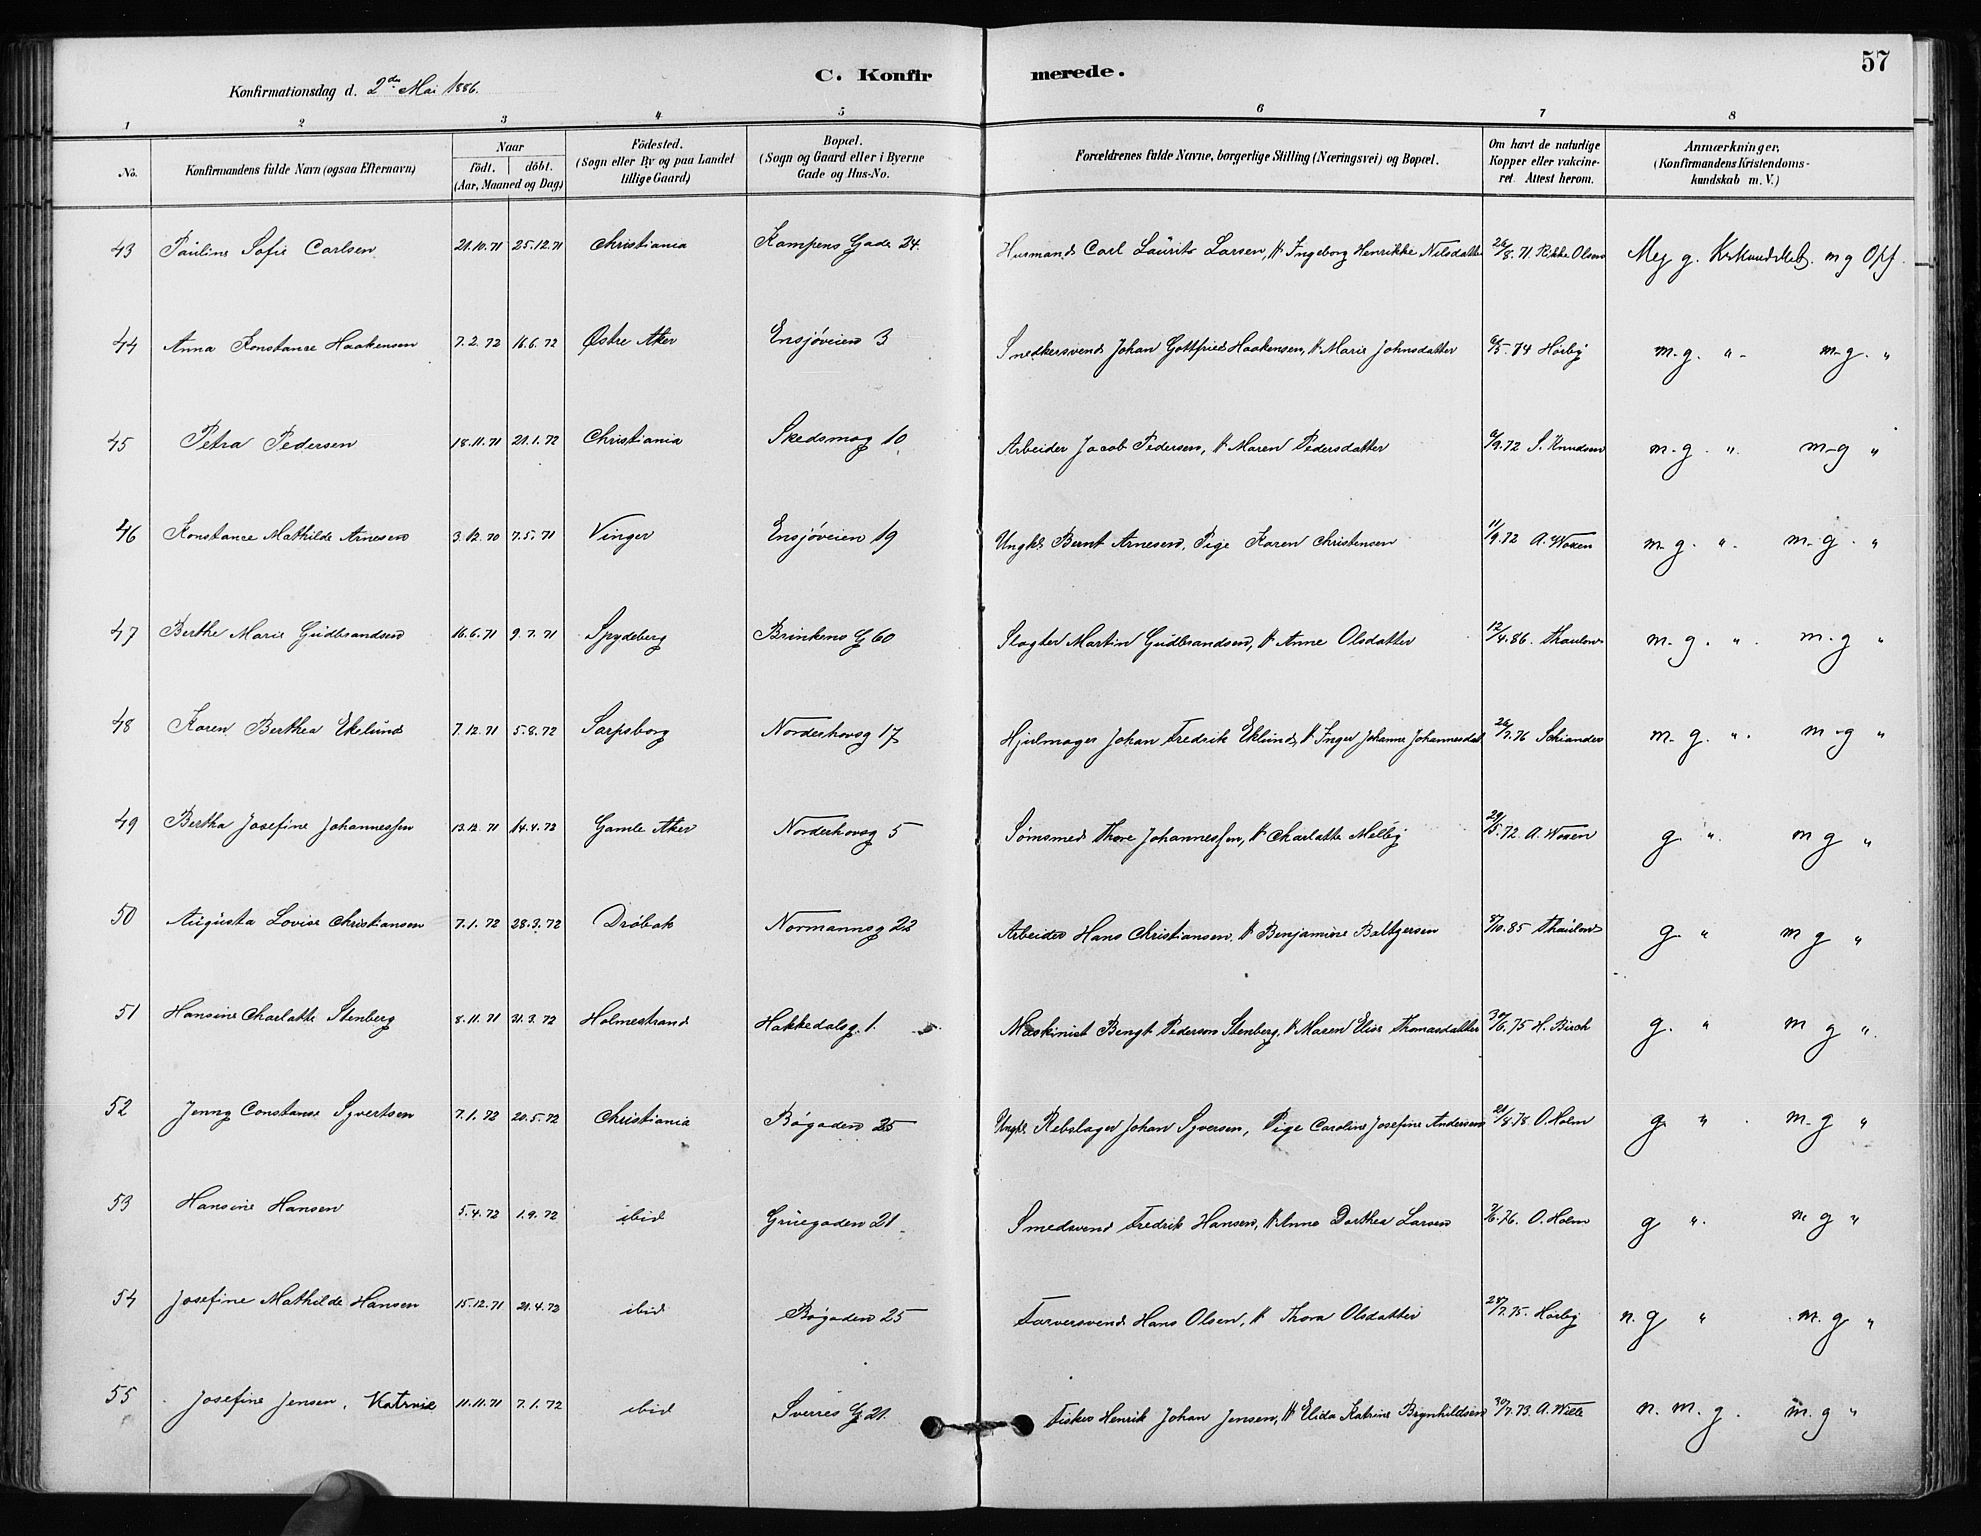 57
C. Konfirmerede.
Konfirmationsdag d. 2den Mai 1886.
1 2 3 4 5 6 7 8
No. Konfirmandens fulde Navn (ogsaa Efternavn) Naar födt. döbt. (Aar, Maaned og Dag) Födested. (Sogn eller By og paa Landet tillige Gaard) Bopæl. (Sogn og Gaard eller i Byerne Gade og Hus-No. Forældrenes fulde Navne, borgerlige Stilling (Næringsvei) og Bopæl. Om havt de naturlige Kopper eller vakcineret. Attest herom. Anmærkninger, (Konfirmandens Kristendomskundskab m. V.)
43 Pauline Sofie Carlsen 21.10.71 25.12.71 Christiania Kampens Gade 24. Husmand Carl Laurits Larsen, H Ingeborg Henrikke Nilsdatter 26/8. 71. Rikke Olsen Meg g. m g Opf.
44 Anna Konstance Haakensen 7.2.72 16.6.72 Østre Aker Ensjøveien 3 Snedkersvend Johan Gottfried Haakensen, H Marie Johnsdatter 6/5. 74 Hörbÿ m. g. " - m - g. "
45 Petra Pedersen 18.11.71 21.1.72 Christiania Skedsmog 10. Arbeider Jacob Pedersen, H Maren Pedersdatter 6/9. 72 S. Knudsen m - g. " m - g "
46 Konstance Mathilde Arnesen 3.12.70 7.5.71 Vinger Ensjøveien 19 Ungk. Bernt Arnesen, Pige Karen Christensen 11/9. 72 A. Woxen m - g. " m - g. "
47 Berthe Marie Gudbrandsen 16.6.71 9.7.71 Spydeberg Brinkens G 60 Slagter Martin Gudbrandsen, H Anne Olsdatter 12/4. 86. Thaulow m - g. " m - g "
48 Karen Berthea Eklund 7.12.71 5.8.72 Sarpsborg Norderhovsg 17 Hjulmager Johan Fredrik Eklund, H Inger Johanne Johannesdat 26/7. 76 Schiander m. g. " m - g "
49 Bertha Josefine Johannessen 13.12.71 14.4.72 Gamle Aker Norderhovsg 5 Sømsmed Thore Johannessen, H Charlotte Melbÿ 29/5. 72. A. Woxen g " m g "
50 Augusta Lovise Christiansen 7.1.72 28.3.72 Dröbak Normannsg 22 Arbeider Hans Christiansen, H Benjamine Baltzersen 8/10. 85 Thaulow g. " m g "
51 Hansine Charlotte Stenberg 8.11.71 31.3.72 Holmestrand Hakkedalsg. 1. Maskinist Bengt Pederson Stenberg, H Maren Elise Thomasdatter 30/6. 75 H. Birch g. " m g "
52 Jenny Constance Syvertsen 7.1.72 20.5.72 Christiania Bøgaden 25 Ungk. Rebslager Johan Syversen, Pige Caroline Josefine Andersen 21/8. 78. O. Holm g " m - g "
53 Hansine Hansen 5.4.72 1.9.72 ibid Gruegaden 21. Smedsvend Fredrik Hansen, H Anne Dorthea Larsen 7/6. 76. O. Holm g " m g "
54 Josefine Mathilde Hansen 15.12.71 21.4.72 ibid Bøgaden 25 Farversvend Hans Olsen, H Thora Olsdatter 28/7. 75. Hörbÿ n. g " m. g "
55 Josefine Jensen, Katrine 11.11.71 7.1.72 ibid Sverres G. 21. Fisker Henrik Johan Jensen, H Elida Katrine Brynhildsen 30/7. 73. A. Wille n. m. g. m. g "